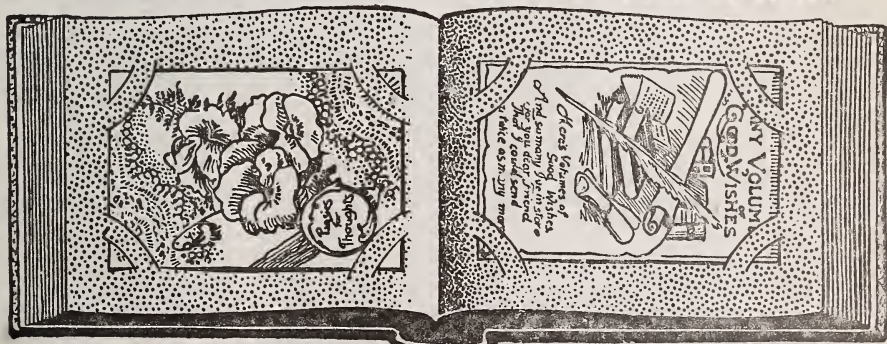 Pansies
for
Thoughts
ANY VOLUM
GOOD WISHES
Here's Volumes of
Good Wishes
And so many I've in store
For you dear friend
That I could send
take as many mo